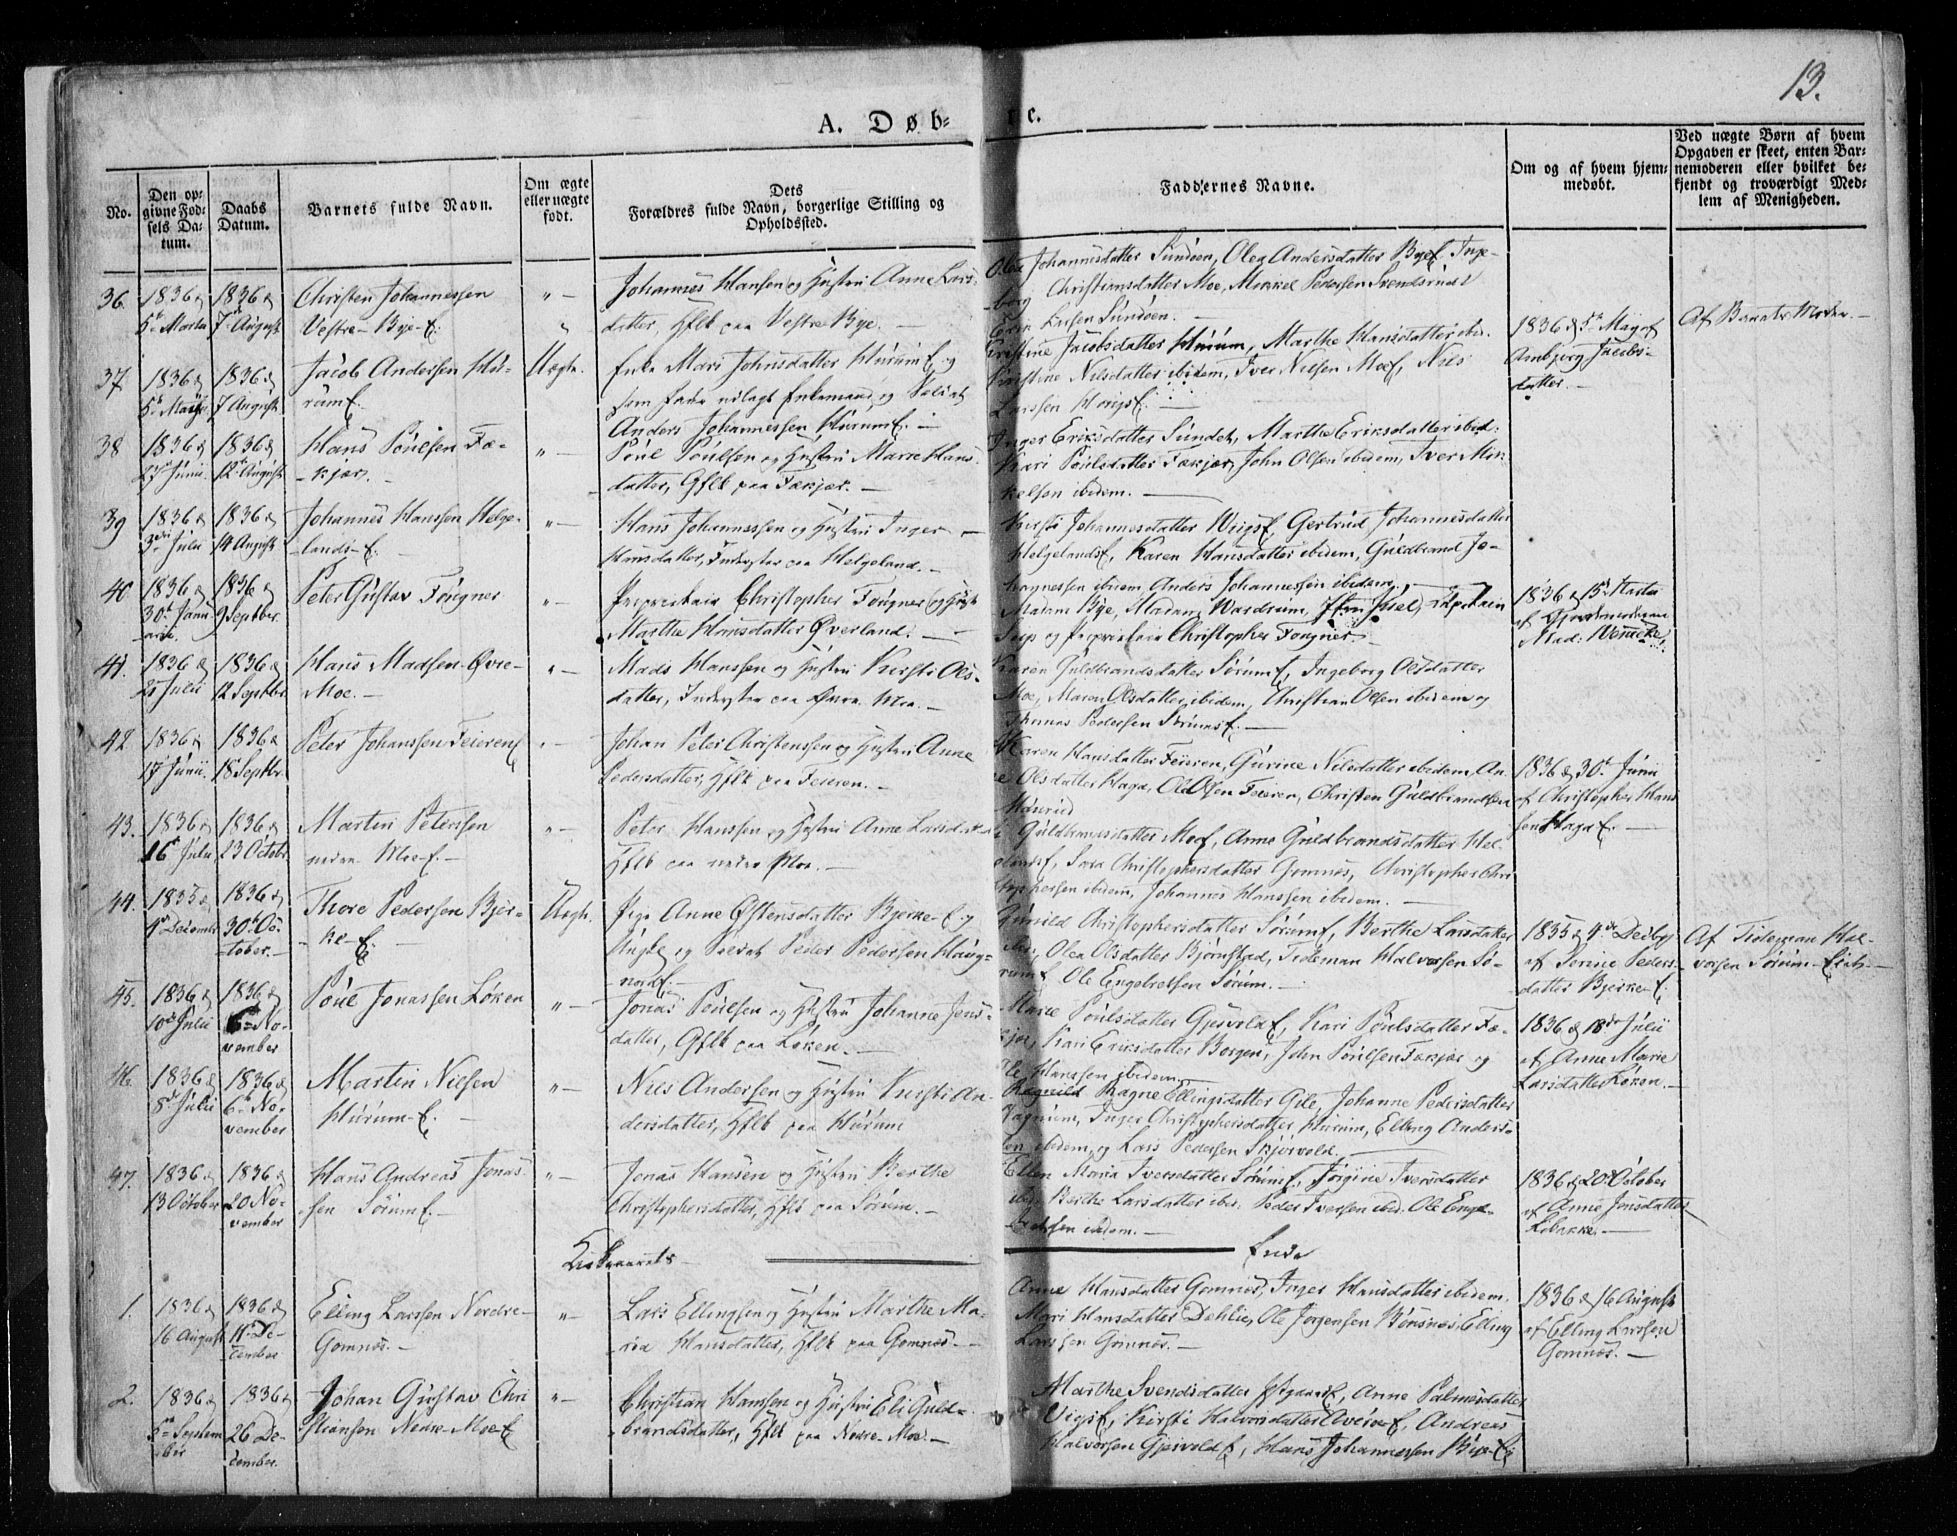 13.
A. Døb-
re.
No.
Den op-
givne Fød-
sels Da-
tum.
Daabs
Datum.
Barnets fulde Navn.
Om ægte
eller uægte
født.
Dets
Forældres fulde Navn, borgerlige Stilling og
Opholdssted.
Faddernes Navne.
Om og af hvem hjem-
medøbt.
Ved uægte Børn af hvem
Opgaven er skeet, enten Bar-
nemoderen eller hvilket be-
kjendt og troværdigt Med-
lem af Menigheden.
36.
1836 d.
5te Martii
1836 d.
7de August
Christen Johannessen
Vestre-Bye-E.
Johannes Hansen og Hustru Anne Lars-
datter, Hflk paa Vestre Bye. —
Olea Johannesdatter Sundøen, Olea Andersdatter ByeE. Inge-
borg Christiansdatter Moe, Mikkel Pedersen Svendsrud
Larsen Sundøen. —
37
1836 d.
5te Maii
1836 d.
7 August
Jacob Andersen Hu-
rumE.
Uægte.
Enke Mari Johnsdatter HurumE. og
som Fader udlagt Enkemand og
Anders Johannessen HurumE. —
Kirstine Jacobsdatter Hurum, Marthe Hansdatter ibid.
Kirstine Nilsdatter ibidem, Iver Nilsen MoeE., Niels
Larssen
1836 d. 5te Maj af
Anbjørg Jacobs-
datter. —
Af Barnets Moder. —
38
1836 d.
27 Junii
1836 d.
12te August
Hans Poulsen Fæ-
kjær.
Poul Poulsen og Hustru Marie Hans-
datter, Gflk paa Fækjær. —
Inger Eriksdatter Sundet, Marthe Eriksdatter ibid.
Kari Poulsdatter Fækjær, John Olsen ibidem, Iver Mik-
kelsen ibidem. —
39
1836 d.
3die Julii
1836 d.
14 August
Johannes Hanssen Helge-
lands-E.
Hans Johannessen og Hustru Inger
Hansdatter, Inderster paa Helgeland. —
Kirsti Johannesdatter VigsE, Gertrud Johannesdatter
HelgelandsE, Karen Hansdatter ibidem, Guldbrand Jo-
hannessen ibidem, Anders Johannessen ibidem. —
40
1836 d.
30te Janu-
arii.
1836 d.
9 Septber.
Peter Gustav Fougner
Proprietair Christopher Fougner og Hustr.
Marthe Hansdatter Øverland. —
Madam Bye, Madam Wardrum, Capitain
og Proprietair Christopher Fougner
1836 d. 15de Martii
af Gjordemoderen
Mad:
41.
1836 d.
Julii
1836 d.
12 Septbr.
Hans Madsen Øvre-
Moe. —
Mads Hanssen og Hustru Kirsti Ols-
datter, Inderster paa Øvre Moe. —
Karen Guldbrandsdatter SørumE, Ingeborg Olsdatter
Moe, Maren Olsdatter ibidem, Christian Olsen ibidem og
Thomas Pedersen SørumsE. —
42
1836 d.
17 Junii.
1836 d.
18 Septbr.
Peter Johanssen FeierenE
Johan Peter Christenssen og Hustru Anne
Pedersdatter, Hflk paa Feieren. —
Karen Hansdatter Feieren, Gurine Nilsdatter ibidem, An-
ne Olsdatter Haga, Ole Olsen Feieren, Christen Guldbrandsen
1836 d. 30te Junii
af Christopher Hans-
sen HagaE. —
43.
1836 d.
16 Julii
1836 d.
23 Octobr.
Martin Peterssen
nedre Moe-E. —
Peter Hanssen og Hustru Anne Larsdatter
Hflk paa nedre Moe. —
Guldbrandsdatter MoeE, Anne Guldbrandsdatter Hel-
gelandsE, Sara Christophersdatter Gomnæs, Christopher Chri-
stophersen ibidem, Johannes Hanssen ibidem. —
44.
1835 d.
4de Decembr.
1836 d.
30te Oc-
tober. —
Thore Pedersen Bjer-
ke-E.
Uægte.
Pige Anne Østensdatter Bjerke-E. og
Ungkarl og Soldat Peder Pedersen Haug-
Gunild Christophersdatter SørumE, Berthe Larsdatter
ibid., Olea Olsdatter Bjørnstad, Tideman Halvorsen Sø-
rumE. Ole Engebretsen Sørum. —
1835 d. 4de Decbr
af Serine Peders-
datter Bjerke-E.
Af Tideman Hal-
vorsen Sørum-Eiet. —
45.
1836 d.
10de Julii
1836 d.
6te No-
vember
Poul Jonassen Løken
Jonas Poulsen og Hustru Johanne Jens-
datter, Gflk paa Løken. —
Marie Poulsdatter GjesvoldE, Kari Poulsdatter Fæ-
kjær, Kari Eriksdatter Borgen, John Poulsen Fækjær og
Ole Hanssen ibidem.
1836 d. 18de Julii
af Anne Marie
Larsdatter Løken. —
46.
1836 d.
8de Julii
1836 d.
6te No-
vember
Martin Nilsen
Hurum-E.
Niels Andersen og Hustru Kirsti An-
dersdatter, Hflk paa Hurum
Ragnild Ragne Ellingsdatter Gile, Johanne Pedersdatter
Vagnum, Inger Christophersdatter Hurum, Elling Anders-
sen ibidem og Lars Pedersen Skjørvold. —
47.
1836 d.
13 October
1836 d.
20 No-
vember
Hans Andreas Jonas-
sen SørumE.
Jonas Hansen og Hustru Berthe
Christophersdatter, Hflk paa Sørum. —
Ellen Maria Iversdatter SørumE, Jørgine Iversdatter
ibid. Berthe Larsdatter ibid. Peder Iversen ibid. Ole Enge-
bretsen ibidem. —
1836 d. 20 October
af Anne Jonsdatter
Libakke. —
Kirkeaarets
Ende
1.
1836 d.
16 August
1836 d.
11te De-
cember
Elling Larssen Nordre-
Gomnæs. —
Lars Ellingsen og Hustru Marthe Ma-
ria Hansdatter, Hflk paa Gomnæs. —
Anne Hansdatter Gomnæs, Inger Hansdatter ibidem.
Mari Hansdatter Dehlie, Ole Jørgensen Bønsnæs, Elling
Larssen Gomnæs. —
1836 d. 16 August
af Elling Larssen
Gomnæs. —
2.
1836 d.
5te Septem-
ber
1836 d.
26 De-
cember.
Johan Gustav Chri-
stiansen Nedre-MoeE
Christian Hanssen og Hustru Eli Guld-
brandsdatter, Hflk paa Nedre-Moe. —
Marthe Svendsdatter, Anne Palmesdatter
VigsE, Kirsti Halvorsdatter AverøeE, Andreas
Halvorsen GjesvoldE, Hans Johannessen Bye-E.